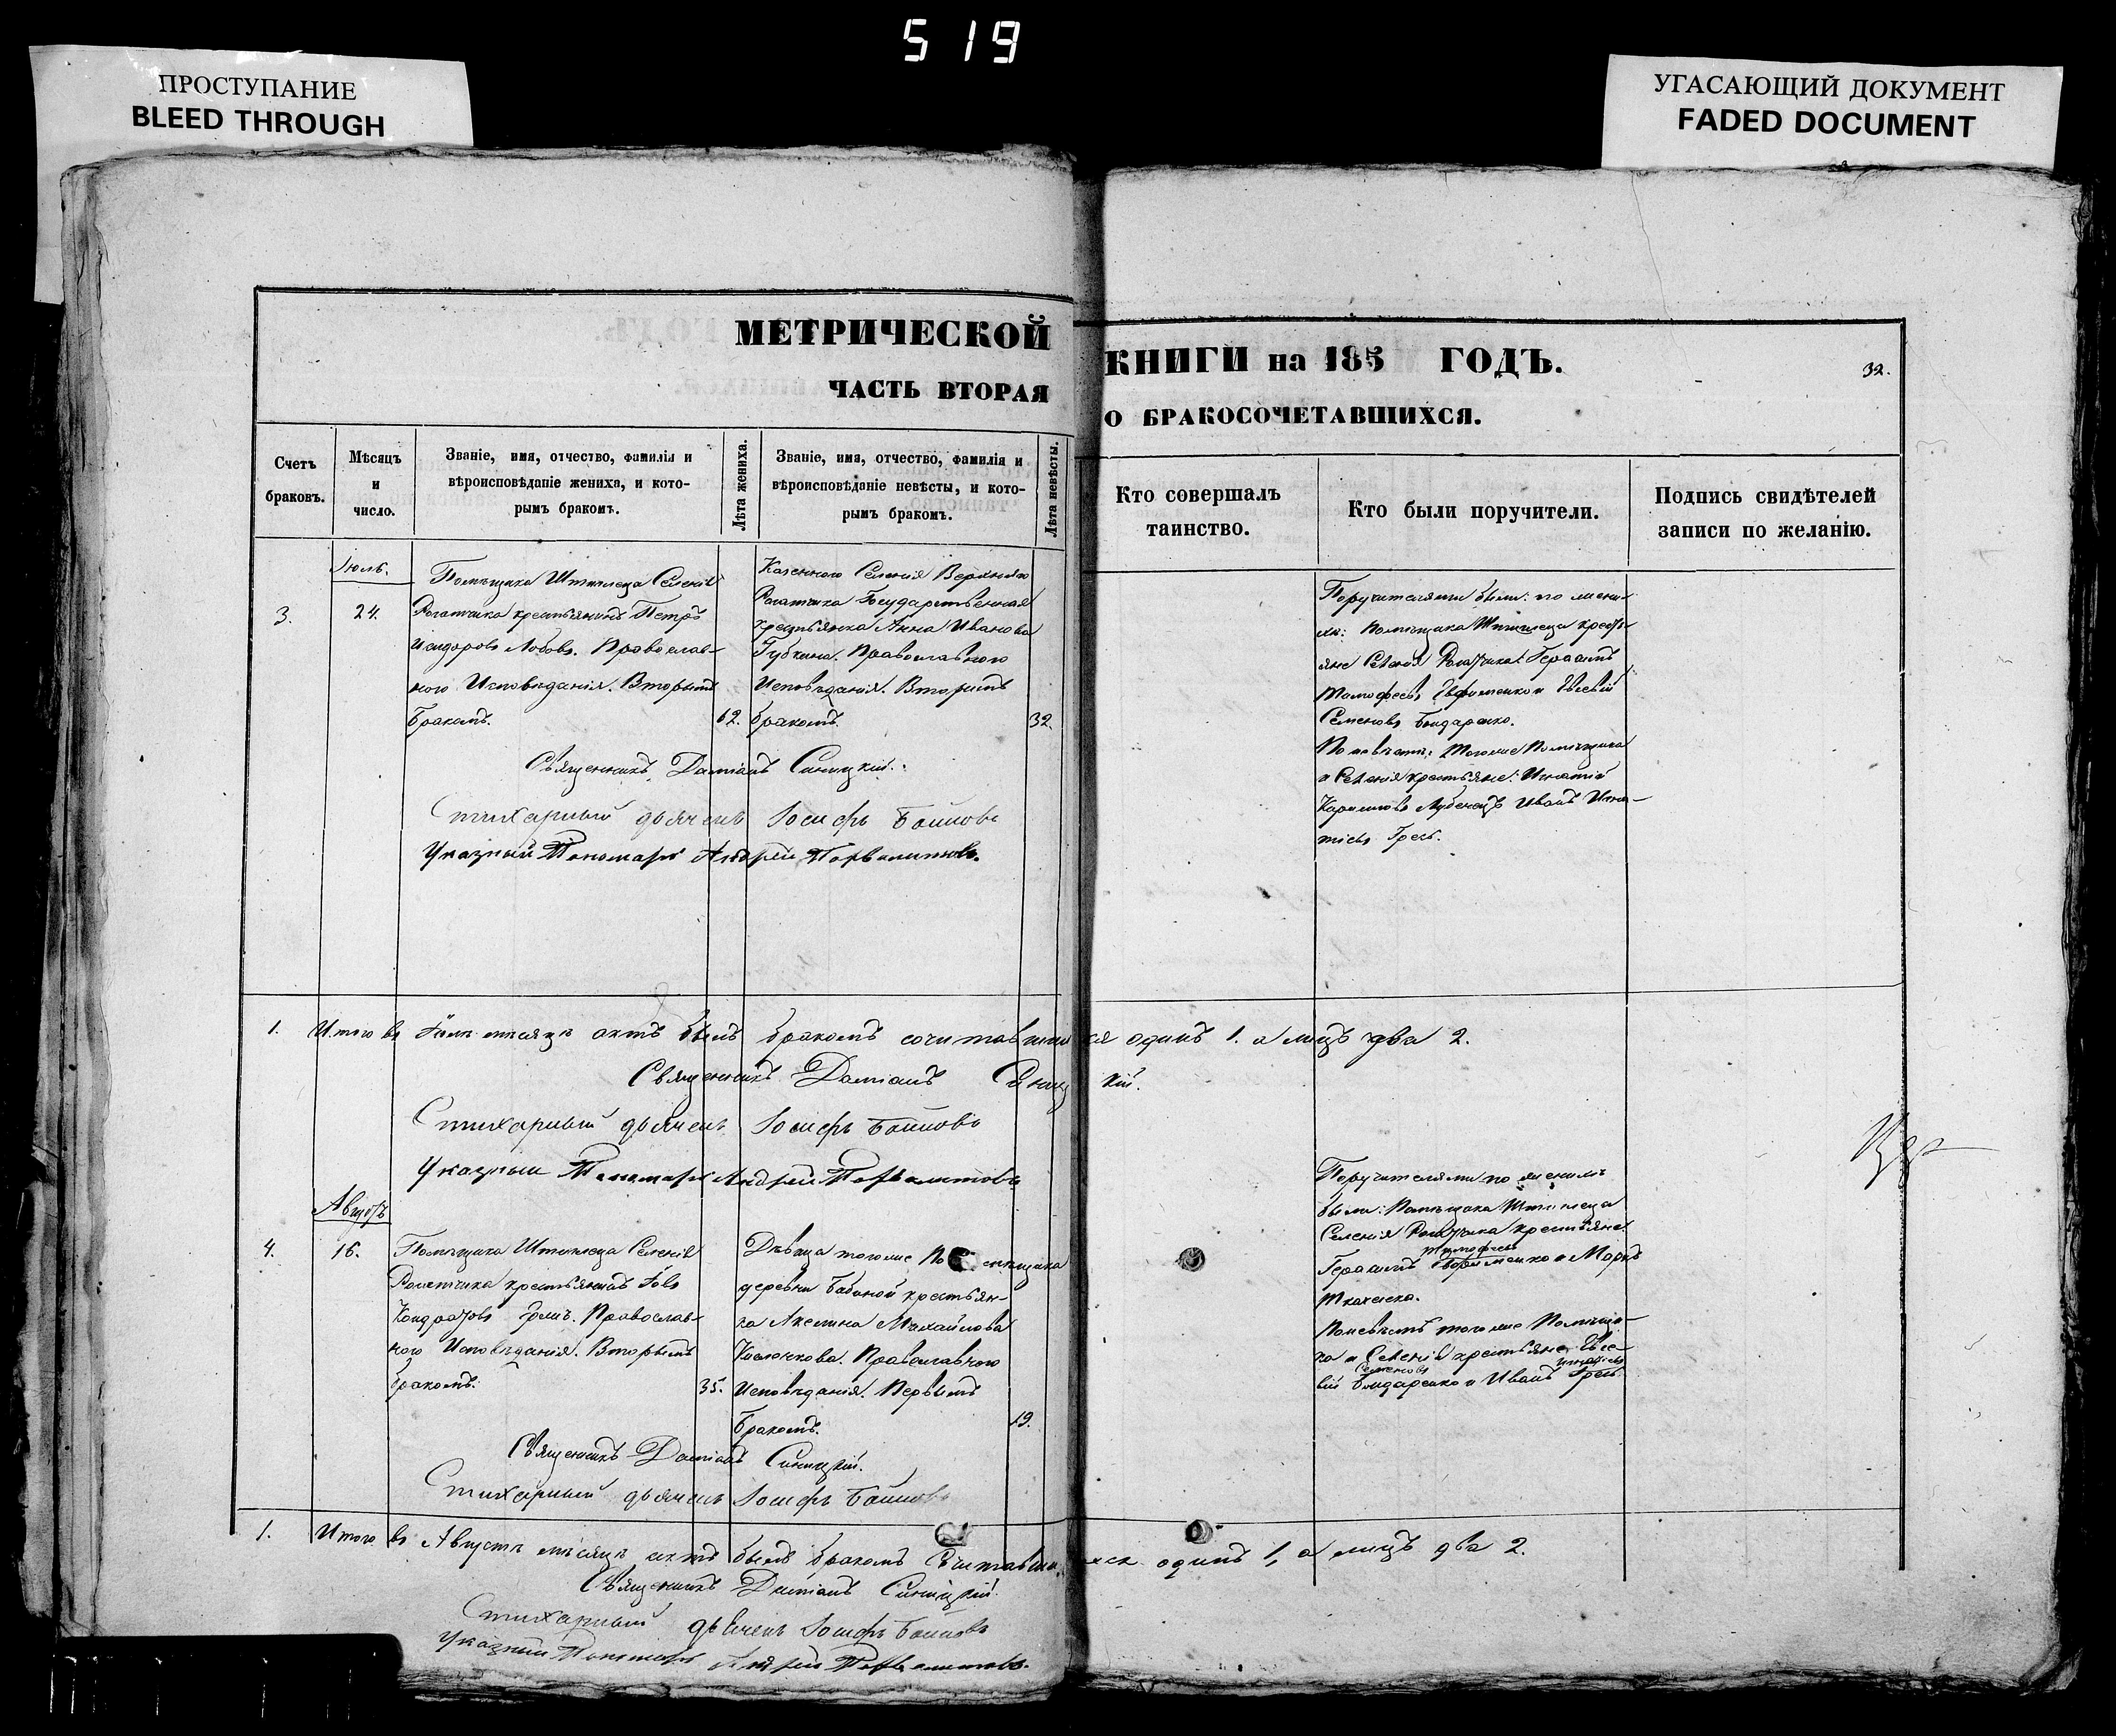 519
ПРОСТУПАНИЕ
BLEED THROUGH
УГАСАЮЩИЙ ДОКУМЕНТ
FADED DOCUMENT
МЕТРИЧЕСКОЙ
ЧАСТЬ ВТОРАЯ
КНИГИ на 185 ГОДЪ.
32.
О БРАКОСОЧЕТАВШИХСЯ.
Счетъ
браковъ.
Мѣсяцъ
и
число.
Званіе, имя, отчество, фамилія и
вѣроисповѣданіе жениха, и кото-
рымъ бракомъ.
Лѣта жениха.
Званіе, имя, отчество, фамилія и
вѣроисповѣданіе невѣсты, и кото-
рымъ бракомъ.
Лѣта невѣсты.
Кто совершалъ
таинство.
Кто были поручители.
Подпись свидѣтелей
записи по желанію.
3.
Іюль.
24.
Помѣщика Штиглеца Селенія
Рогатчика крестьянинъ Петръ
Исидоровъ Лобовъ. Православ-
ного Исповѣданія. Вторымъ
бракомъ.
62.
Казенного Селенія Верхняго
Рогатчика Государственная
крестьянка Анна Иванова
Губкина. Православного
Исповѣданія. Вторымъ
бракомъ.
32.
Поручителями были: по жени-
хѣ: Помѣщика Штиглеца крестья-
яне Селенія Рогатчика: Герасимъ
Тимофеевъ Евфименко и Евсевій
Семеновъ Бондаренко.
По невѣстѣ: тогоже Помѣщика
и Селенія крестьяне: Игнатій
Иванъ Игна-
тіевъ
Священникъ Даміанъ Синицкій.
Стихарный дьячекъ Іосифъ Бойновъ
Указный Пономарь Андрей
1. Итого въ Іюлѣ мѣсяцѣ актъ былъ бракомъ сочитавшихся одинъ 1. а лицъ два 2.
Священникъ Даміанъ Синицкій.
Стихарный дьячекъ Іосифъ Бойновъ
Указный Пономарь Андрей
Августъ
4.
16.
Помѣщика Штиглеца Селенія
Рогатчика крестьянинъ Іовъ
Кондратовъ Православ-
ного Исповѣданія. Вторымъ
бракомъ.
35.
Дѣвица тогоже Помѣщика
деревни Бабиной крестьян-
ка Акелина Михайлова
Православного
Исповѣданія. Первымъ
бракомъ.
19.
Поручителями по женихѣ
были: Помѣщика Штиглеца
Селенія Рогатчика крестьяне
Герасимъ Тимофеевъ Евфименко и Маркъ
По невѣстѣ тогоже Помѣщи-
ка и Селенія крестьяне Евсе-
вій Семеновъ Бондаренко и Иванъ Игнатіевъ
Священникъ Даміанъ Синицкій.
Стихарный дьячекъ Іосифъ Бойновъ
1. Итого въ Августѣ мѣсяцѣ актъ былъ бракомъ сочитавшихся одинъ 1, а лицъ два 2.
Священникъ Даміанъ Синицкій.
Стихарный дьячекъ Іосифъ Бойновъ
Указный Пономарь Андрей